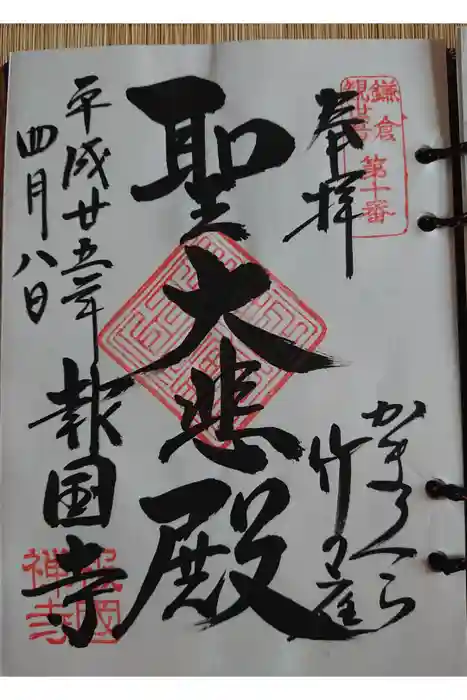 鎌倉
観世音 第十番
奉拝
かまくら
竹の庭
聖大悲殿
平成廿五年
四月八日
報国寺
報國
禅寺